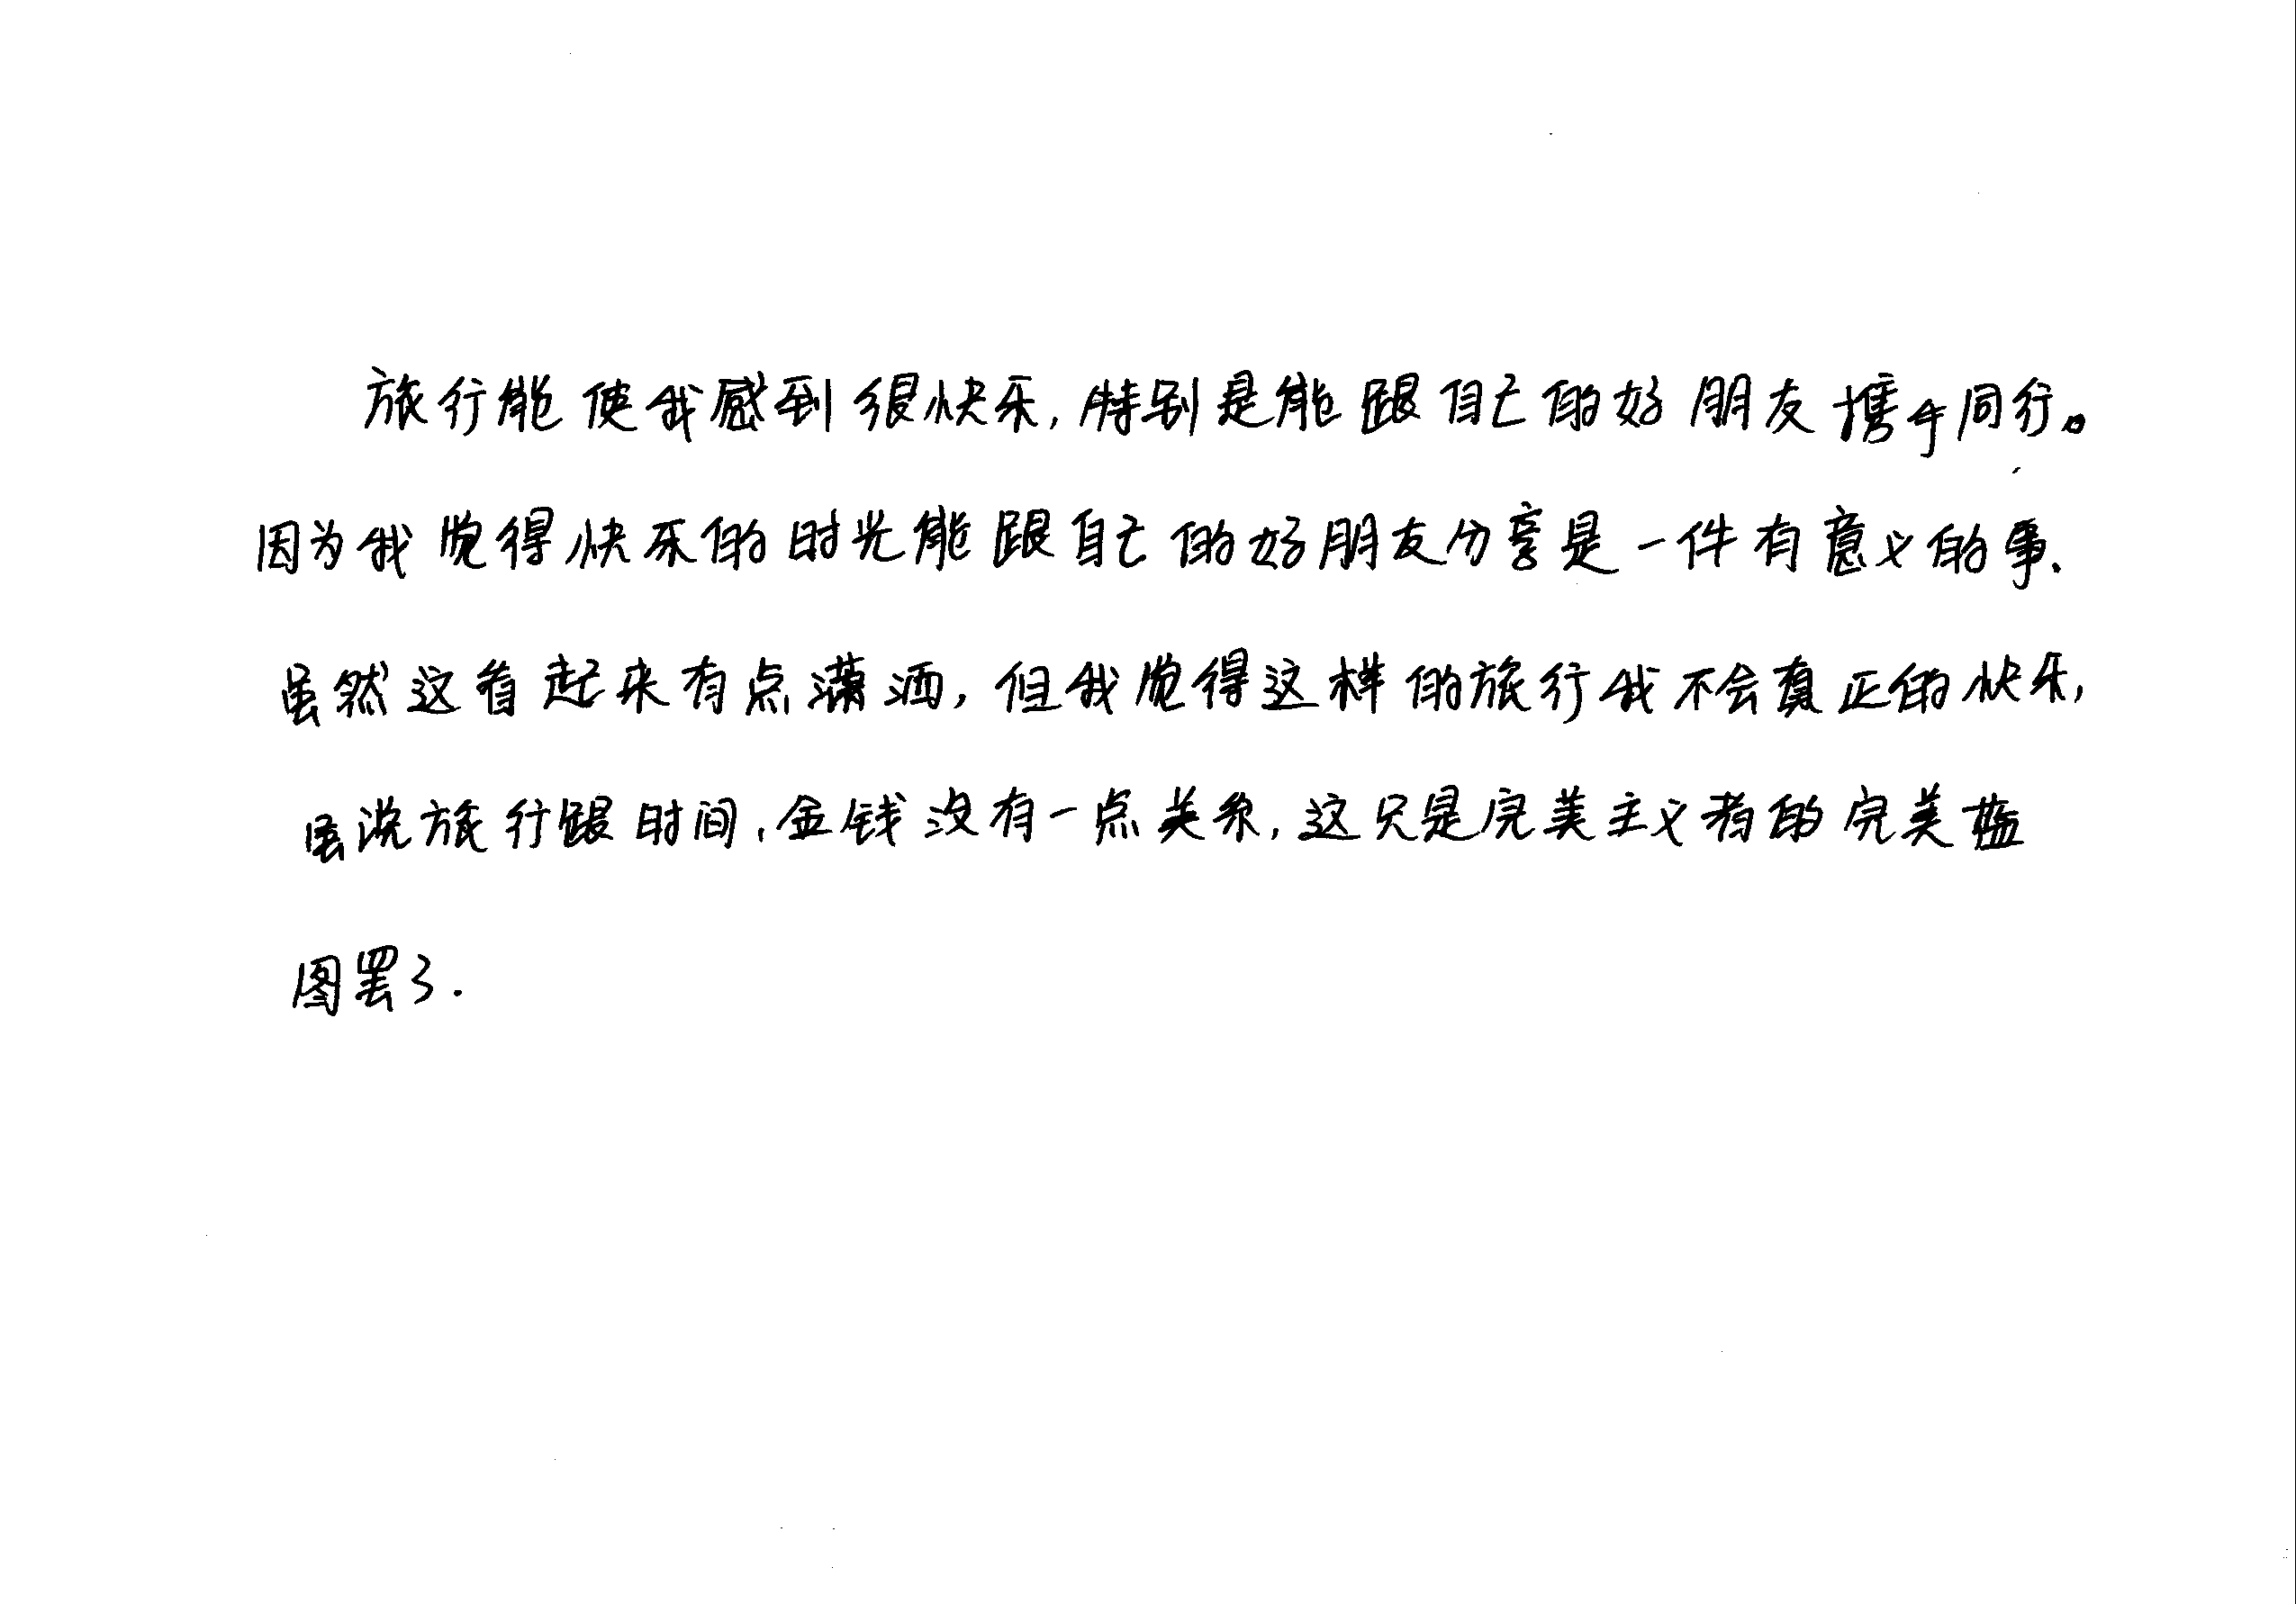 旅行能使我感到很快乐,特别是能跟自己的好朋友携手同行。
因为我觉得快乐的时光能跟自己的好朋友分享是一件有意义的事.
虽然这看起来有点潇洒,但我觉得这样的旅行我不会真正的快乐,
虽说旅行跟时间,金钱没有一点关系,这只是完美主义者的完美蓝
图罢了.